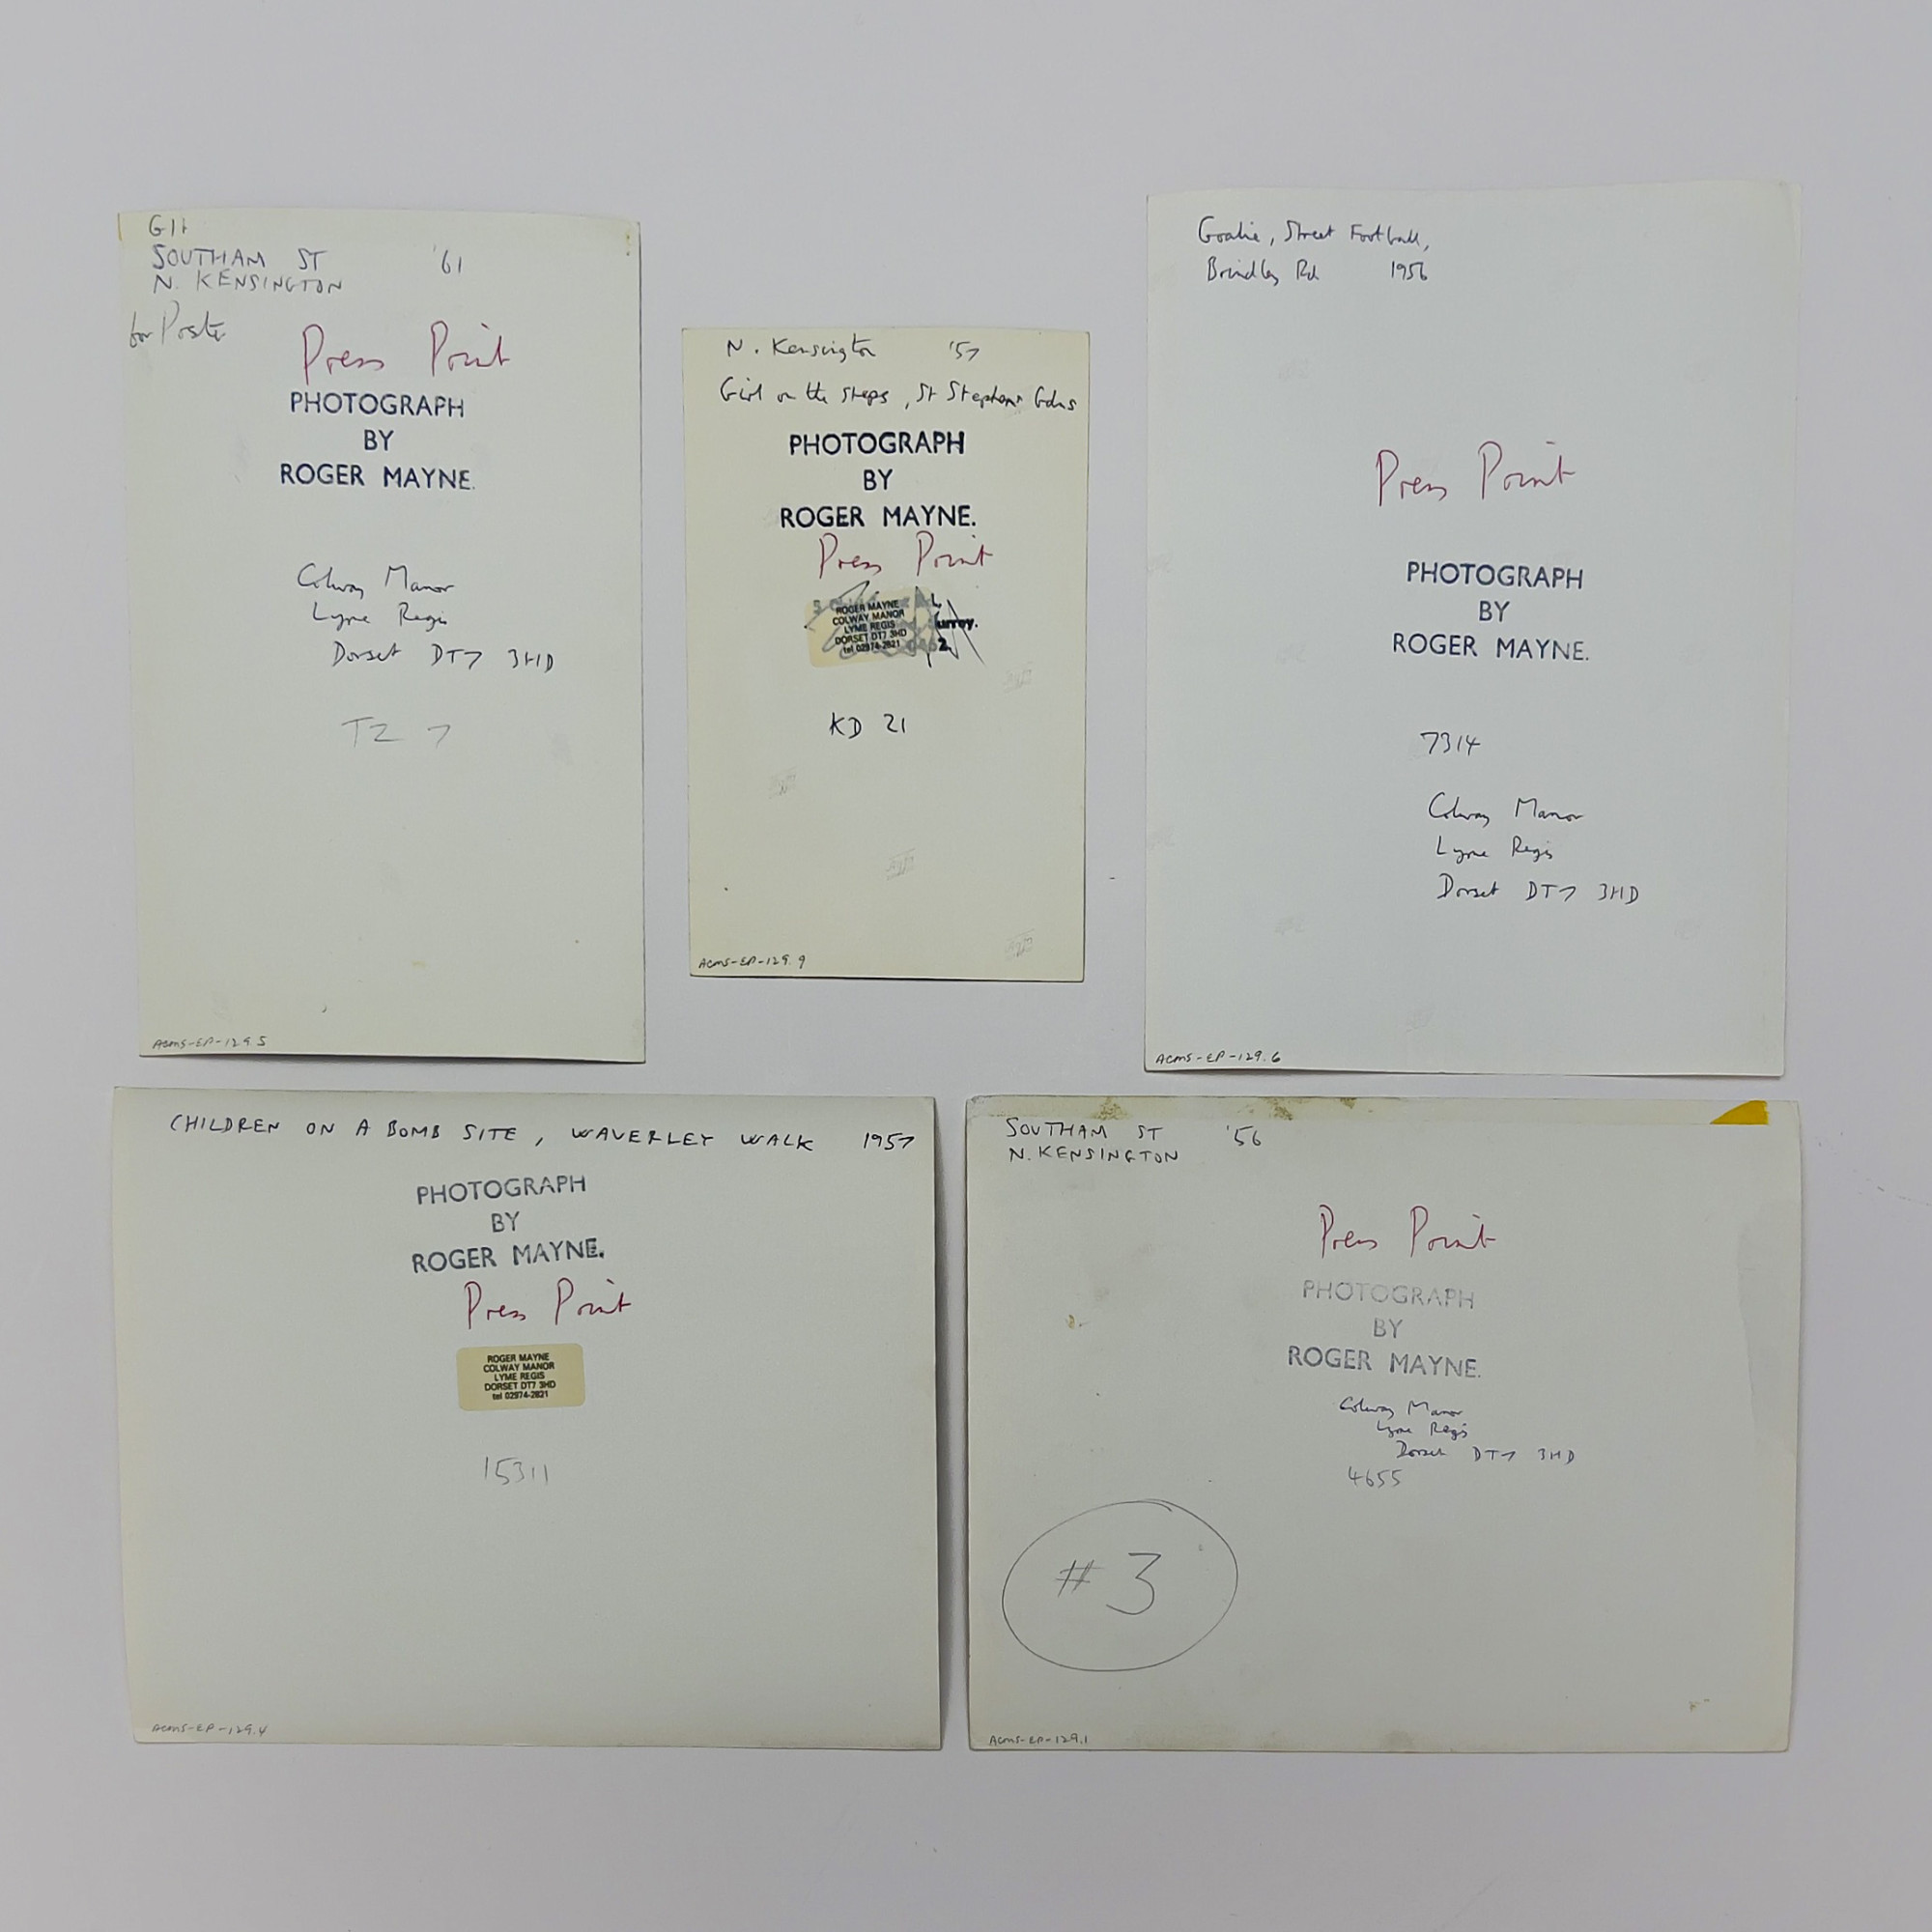 SOUTHAM ST '61
N. KENSINGTON
for Poster
Press Print
PHOTOGRAPH
BY
ROGER MAYNE.
Colway Manor
Lyme Regis
Dorset DT7 3HD
TZ 7
ACMS-EP-129.5
N. Kensington '57
Girl on the steps, St Stephens Gdns
PHOTOGRAPH
BY
ROGER MAYNE.
Press Print
ROGER MAYNE
COLWAY MANOR
LYME REGIS
DORSET DT7 3HD
tel 02974-2821
KD 21
ACMS-EP-129.9
Goalie, Street Football,
Brindley Rd 1956
Press Print
PHOTOGRAPH
BY
ROGER MAYNE.
7314
Colway Manor
Lyme Regis
Dorset DT7 3HD
ACMS-EP-129.6
CHILDREN ON A BOMB SITE, WAVERLEY WALK 1957
PHOTOGRAPH
BY
ROGER MAYNE.
Press Print
ROGER MAYNE
COLWAY MANOR
LYME REGIS
DORSET DT7 3HD
tel 02974-2821
15311
ACMS-EP-129.4
SOUTHAM ST '56
N. KENSINGTON
Press Print
PHOTOGRAPH
BY
ROGER MAYNE.
Colway Manor
Lyme Regis
Dorset DT7 3HD
4655
#3
ACMS-EP-129.1